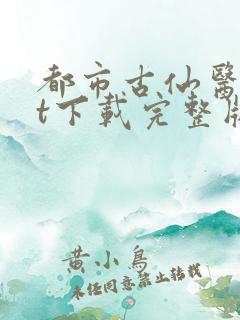 都市古仙醫
t下載完整版
黃小鳥
未經同意禁止轉載